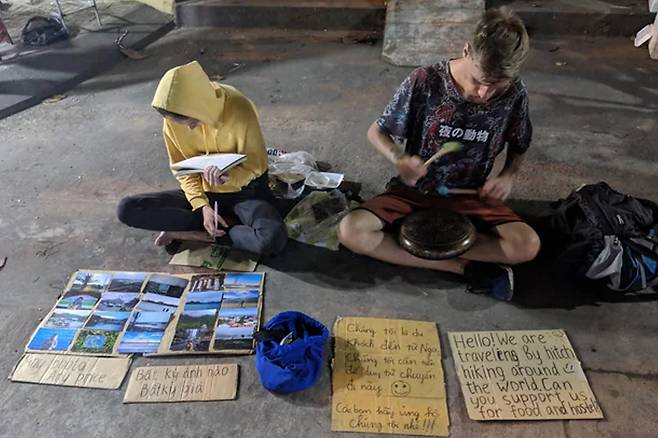 夜の動物
Any photo
Any price
Bất kỳ ảnh nào
Bất kỳ giá
Chúng tôi là du
khách đến từ Nga,
Chúng tôi cần tiền
để duy trì chuyến
đi này
Các bạn hãy ủng hộ
Chúng tôi nhé!!!
Hello! We are
traveling By hitch
hiking around
the world.Can
you support us
for food and hostel